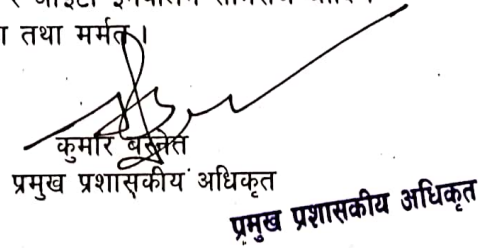 तथा मर्मत।
कुमार बस्नेत
प्रमुख प्रशासकीय अधिकृत
प्रमुख प्रशासकीय अधिकृत